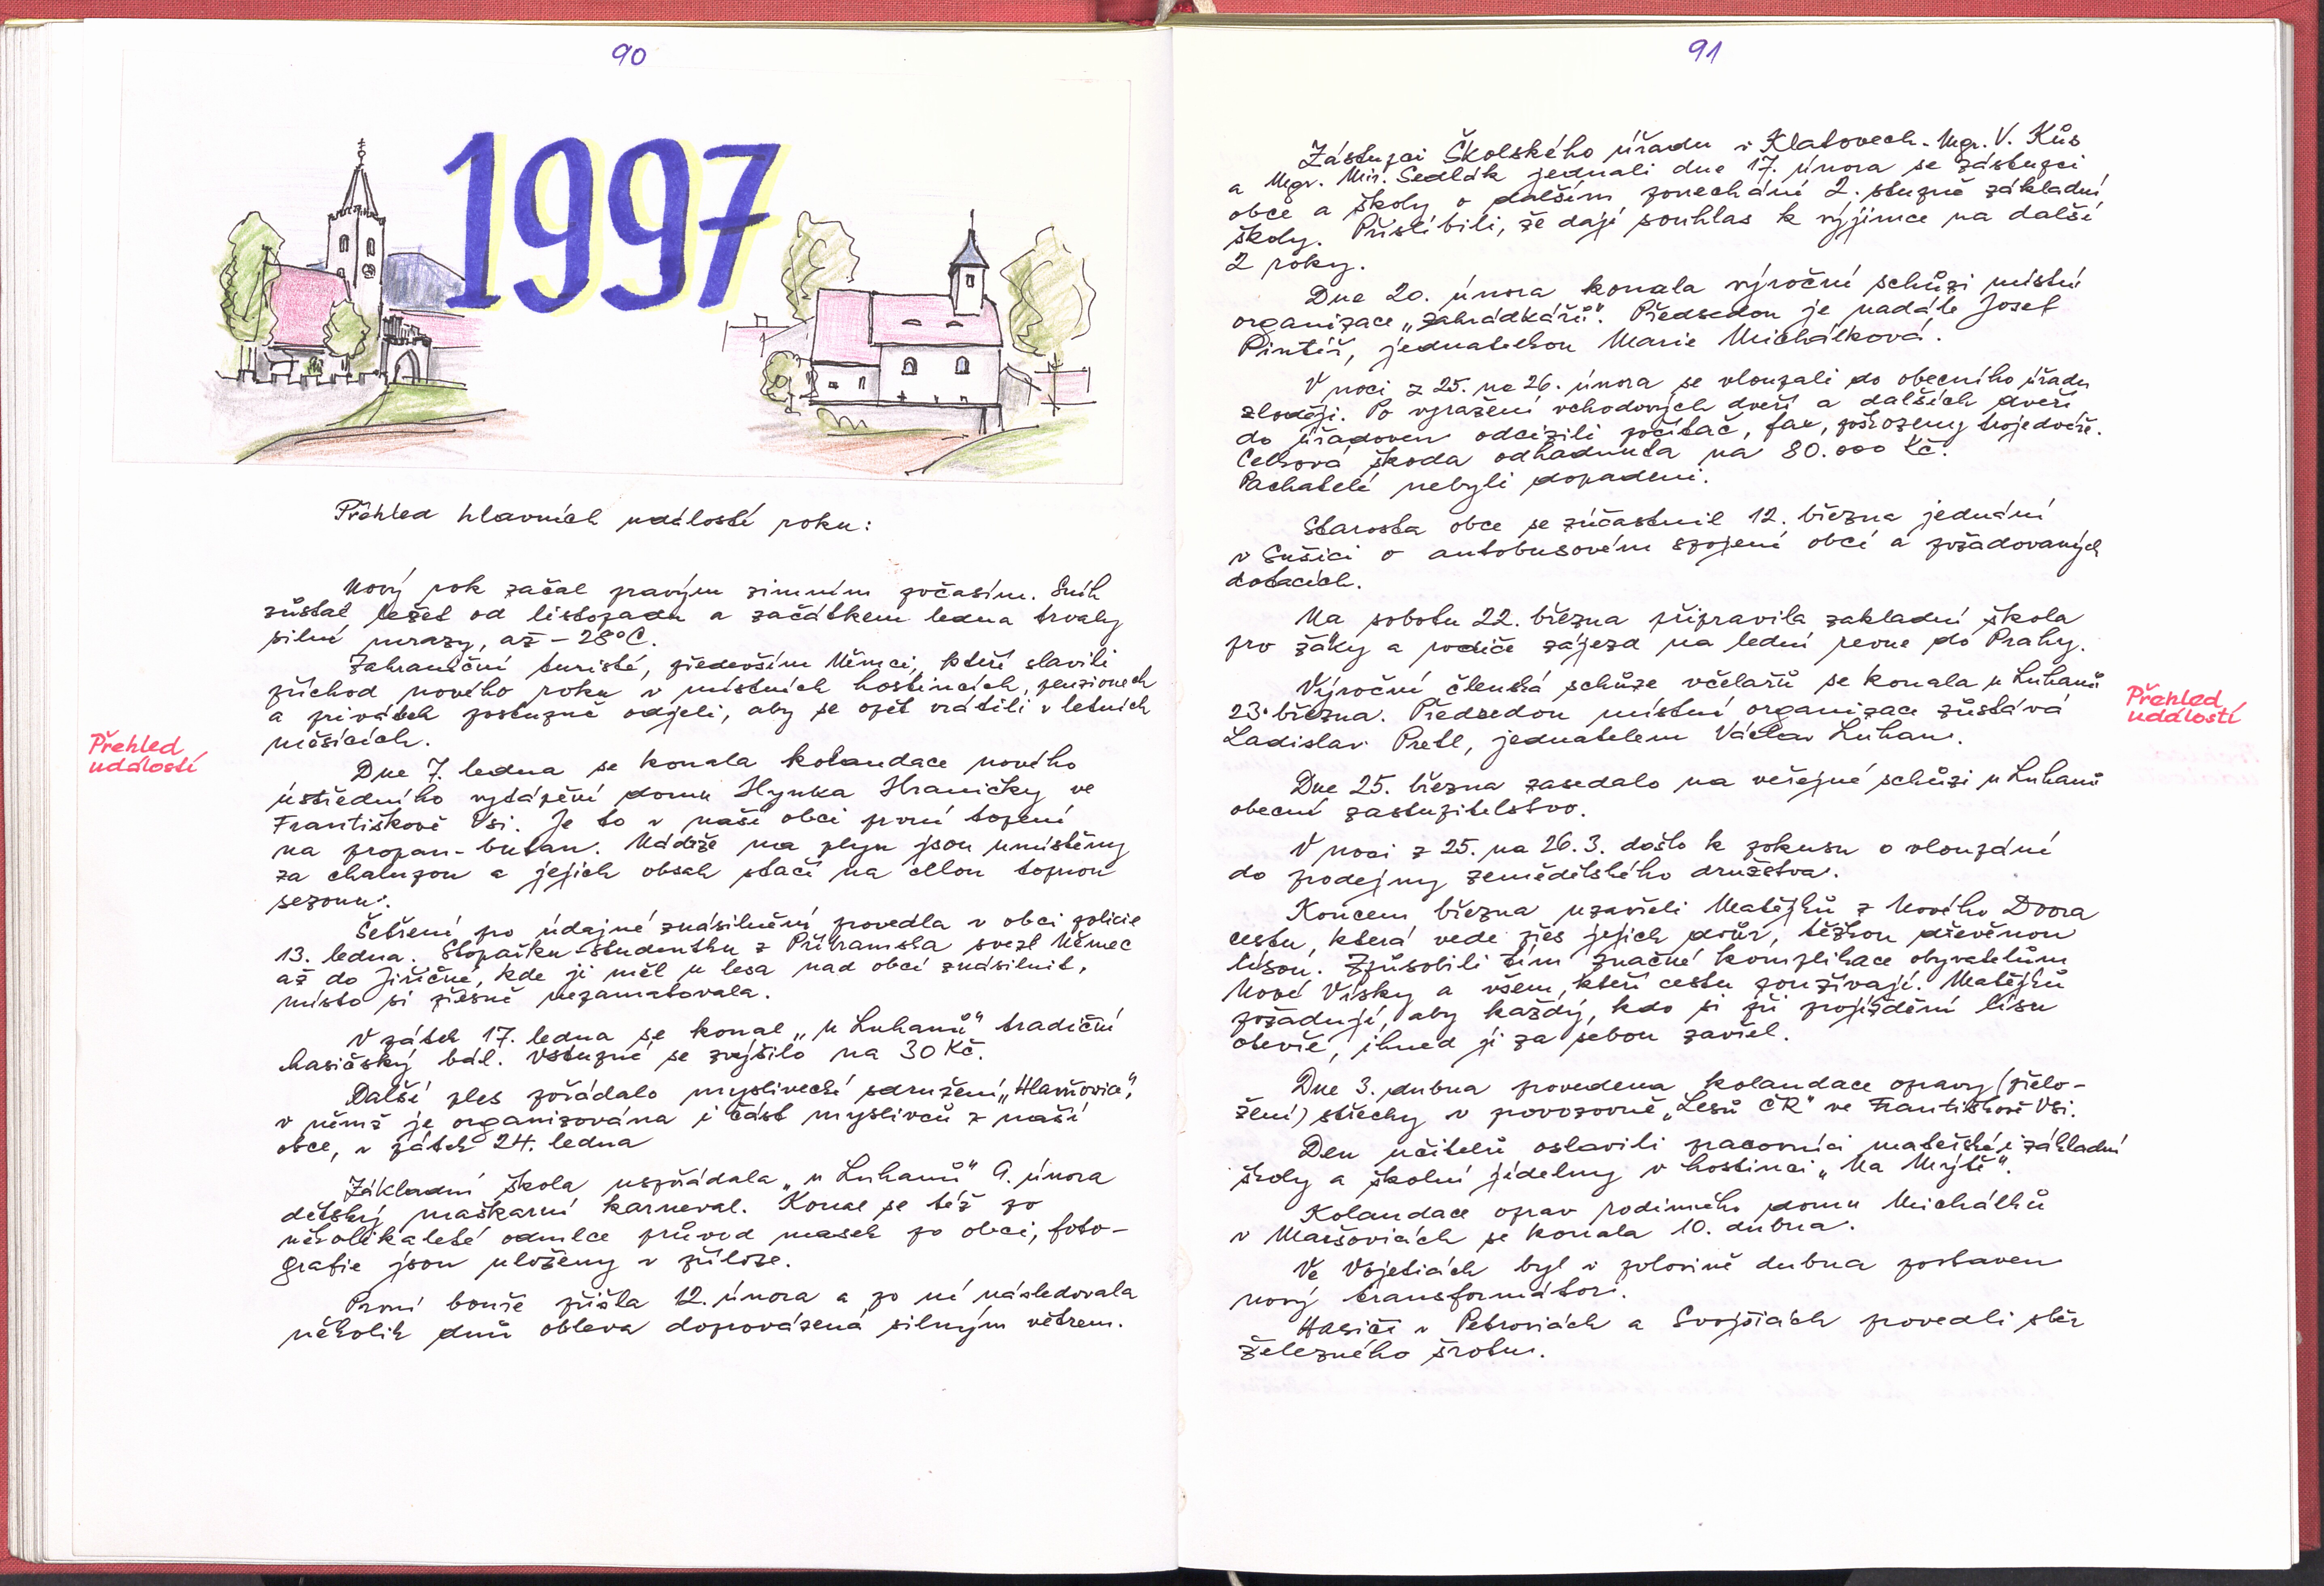 90
1997
Přehled hlavních událostí roku:
Nový rok začal pravým zimním počasím. Sníh
zůstal ležet od listopadu a začátkem ledna trvaly
silné mrazy, až -28°C.
Zahraniční turisté, především Němci, kteří slavili
příchod nového roku v místních hostincích, penzionech
a privátech postupně odjeli, aby se opět vrátili v letních
měsících.
Přehled
událostí
Dne 7. ledna se konala kolaudace nového
ústředního vytápění domu Hynka Hraničky ve
Františkově Vsi. Je to v naší obci první topení
na propan-butan. Nádrže na plyn jsou umístěny
za chalupou a jejich obsah stačí na celou topnou
sezonu.
Šetření po údajné znásilnění provedla v obci policie
13. ledna. Stopařku-studentku z Příbramska svezl Němec
až do Jiřičné, kde ji měl u lesa nad obcí znásilnit,
místo si přesně nezamatovala.
V pátek 17. ledna se konal „u Luhanů" tradiční
hasičský bál. Vstupné se zvýšilo na 30 Kč.
Další ples pořádalo myslivecké sdružení „Hlavňovice",
v němž je organizována i část myslivců z naší
obce, v pátek 24. ledna
Základní škola uspořádala „u Luhanů" 9. února
dětský maškarní karneval. Konal se též po
několikaleté odmlce průvod masek po obci, foto-
grafie jsou uloženy v příloze.
První bouře přišla 12. února a po ní následovala
několik dnů obleva doprovázená silným větrem.
91
Zástupci Školského úřadu v Klatovech - Mgr. V. Kůs
a Mgr. Mir. Sedlák jednali dne 17. února se zástupci
obce a školy o dalším ponechání 2. stupně základní
školy. Přislíbili, že dají souhlas k výjimce na další
2 roky.
Dne 20. února konala výroční schůzi místní
organizace „zahrádkářů". Předsedou je nadále Josef
Pintíř, jednatelkou Marie Michálková.
V noci z 25. na 26. února se vloupali do obecního úřadu
zloději. Po vyražení vchodových dveří a dalších dveří
do úřadoven odcizili počítač, fax, poškozeny troje dveře.
Celková škoda odhadnuta na 80.000 Kč.
Pachatelé nebyli dopadeni.
Starosta obce se zúčastnil 12. března jednání
v Sušici o autobusovém spojení obcí a požadovaných
dotacích.
Na sobotu 22. března připravila zakladní škola
pro žáky a rodiče zájezd na lední revue do Prahy.
Výroční členská schůze včelařů se konala u Luhanů
23. března. Předsedou místní organizace zůstává
Ladislav Pretl, jednatelem Václav Luhan.
Přehled
událostí
Dne 25. března zasedalo na veřejné schůzi u Luhanů
obecní zastupitelstvo.
V noci z 25. na 26. 3. došlo k pokusu o vloupání
do prodejny zemědělského družstva.
Koncem března uzavřeli Matějků z Nového Dvora
cestu, která vede přes jejich dvůr, těžkou dřevěnou
lísou. Způsobili tím značné komplikace obyvatelům
Nové Vísky a všem, kteří cestu používají. Matějků
požadují, aby každý, kdo si při projíždění lísu
otevře, ihned ji za sebou zavřel.
Dne 3. dubna provedena kolaudace opravy (přelo-
žení) střechy v provozovně „Lesů ČR" ve Františkově Vsi.
Den učitelů oslavili pracovníci mateřské i základní
školy a školní jídelny v hostinci „Na Mýtě".
Kolaudace oprav rodinného domu Michálků
v Maršovicích se konala 10. dubna.
Ve Vojeticích byl v polovině dubna postaven
nový transformátor.
Hasiči v Petrovicích a Svojšicích provedli sběr
železného šrotu.